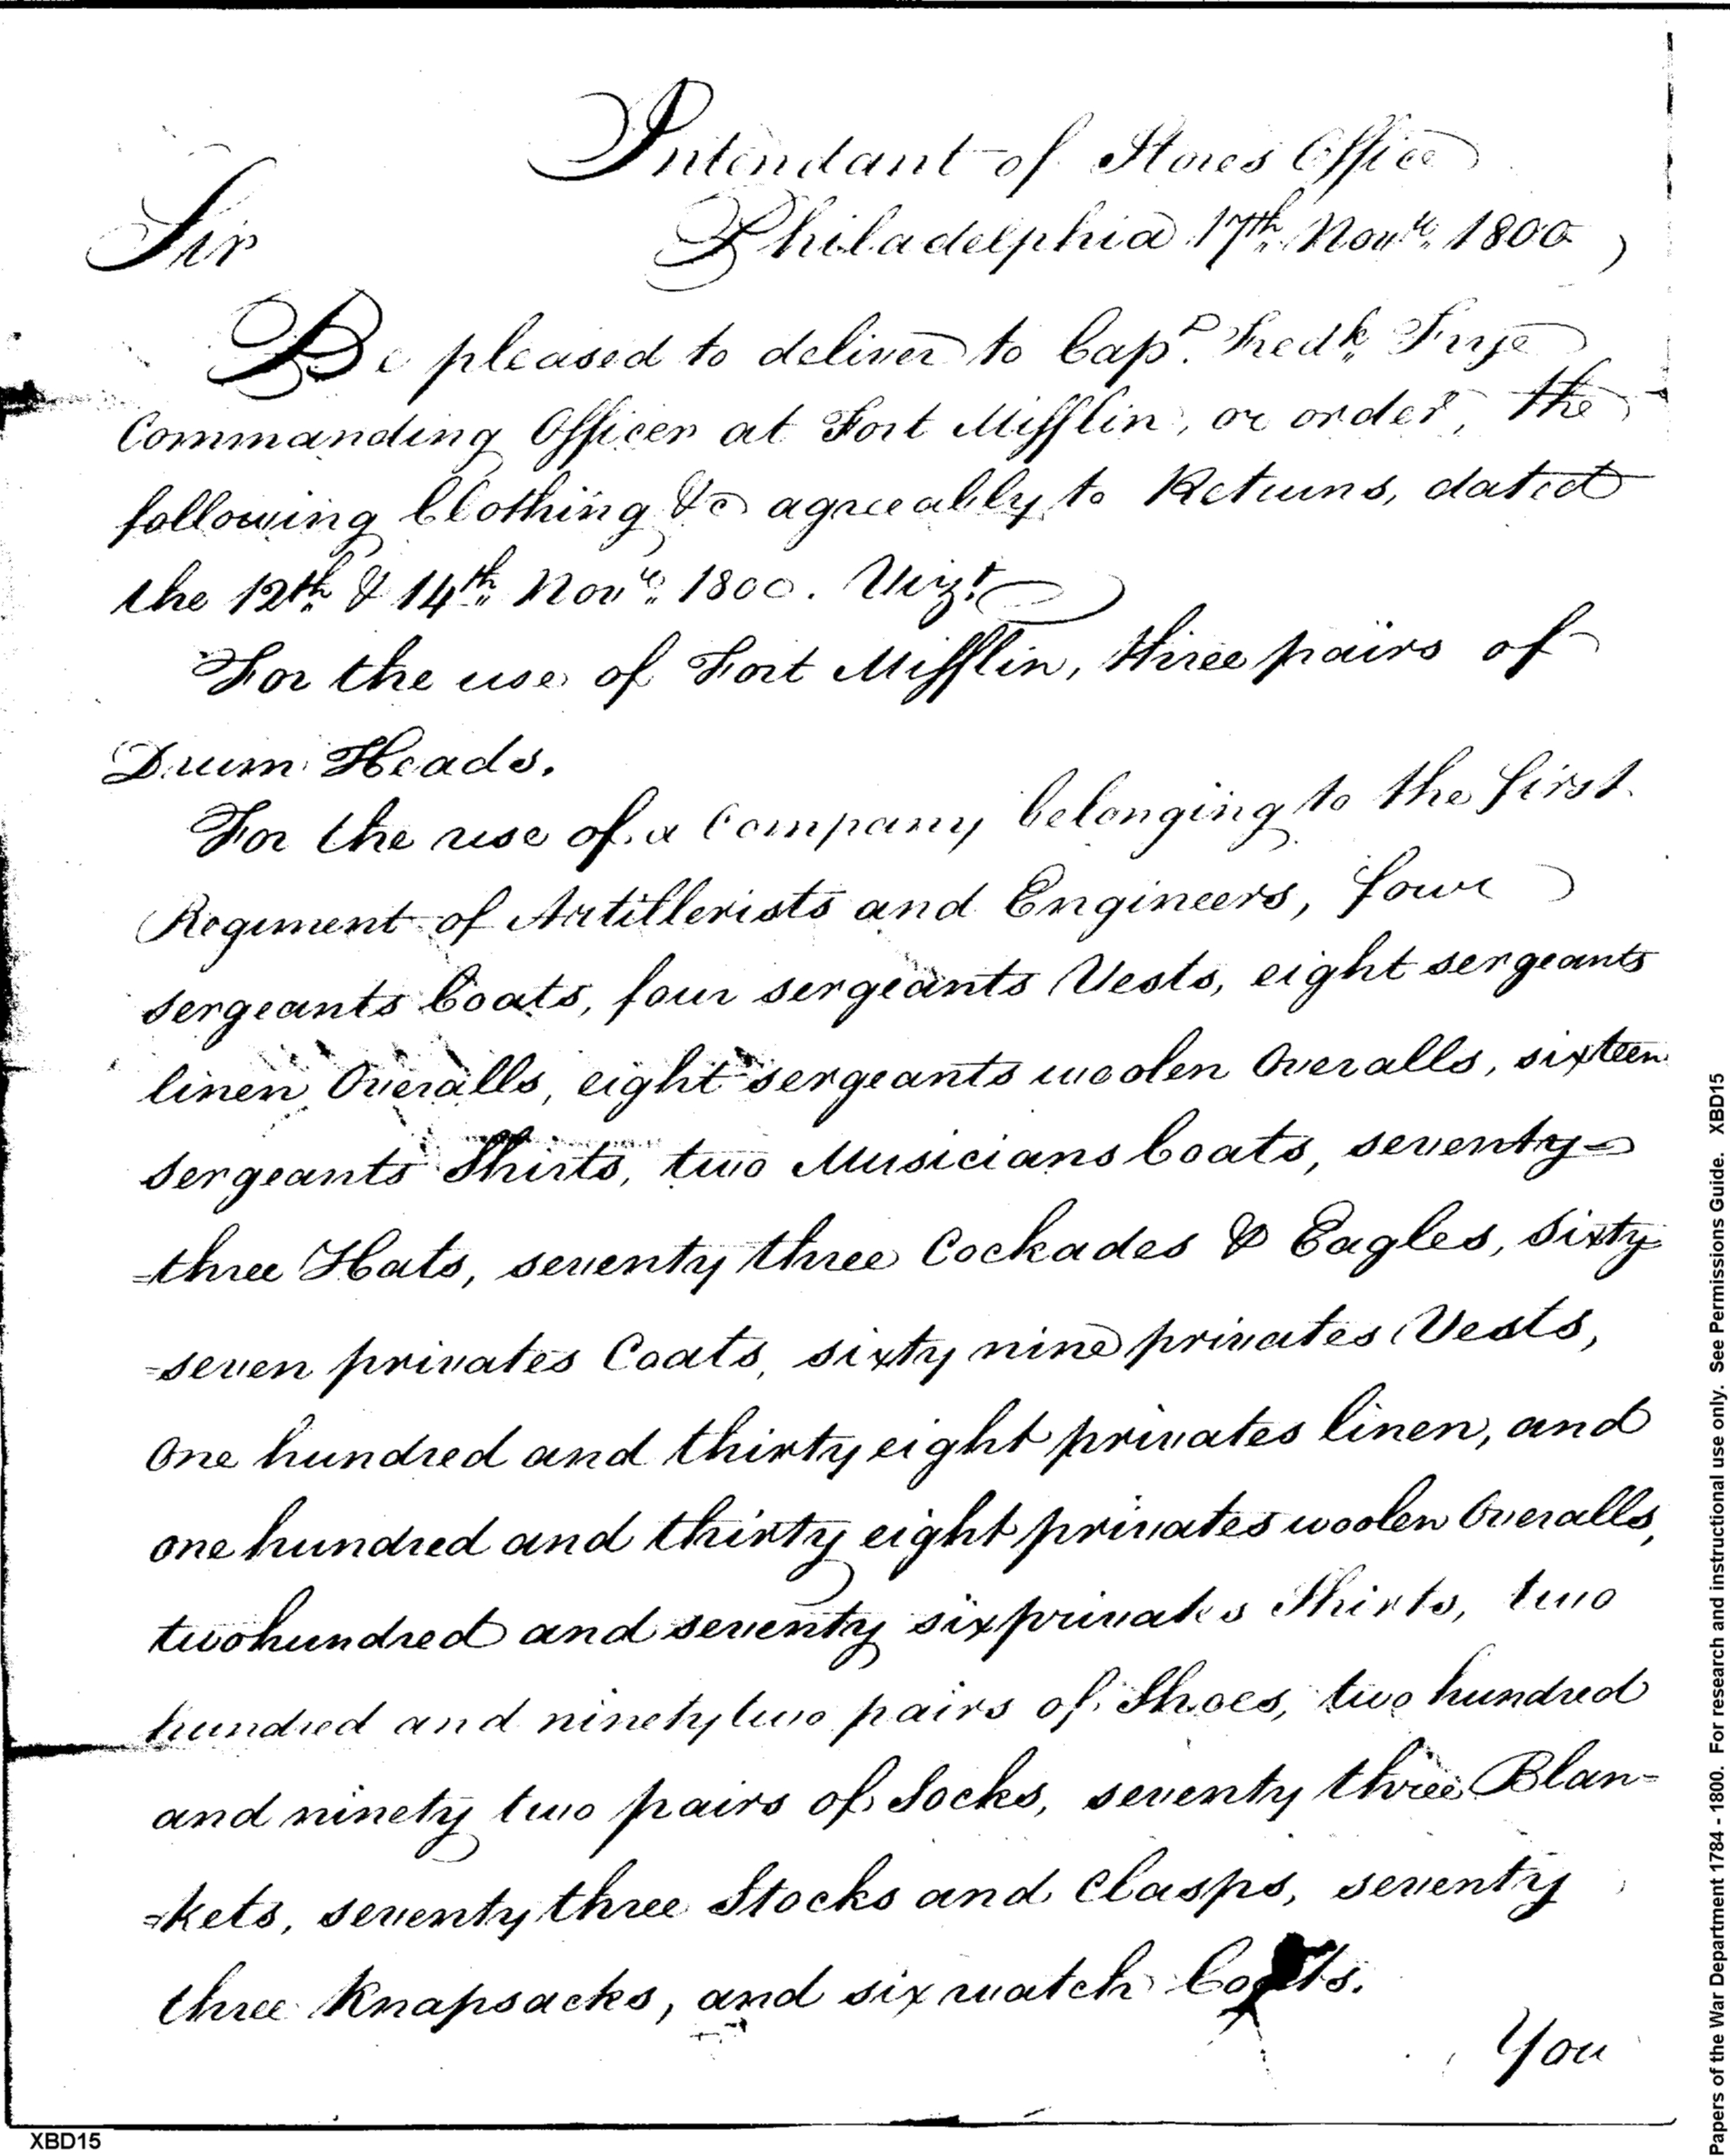 Intendant of Stores Office
Sir
Philadelphia 17th Novr. 1800
Be pleased to deliver to Capt. Fredk. Frye
Commanding Officer at Fort Mifflin, or order, the
following Clothing &c agreeably to Returns, dated
the 12th & 14th Novr. 1800. Vizt.
For the use of Fort Mifflin, three pairs of
Drum Heads.
For the use of a Company belonging to the first
Regiment of Artillerists and Engineers, four
sergeants Coats, four sergeants Vests, eight sergeants
linen Overalls, eight sergeants woolen Overalls, sixteen
sergeants Shirts, two Musicians Coats, seventy-
=three Hats, seventy three Cockades & Eagles, sixty
=seven privates Coats, sixty nine privates Vests,
One hundred and thirty eight privates linen, and
one hundred and thirty eight privates woolen Overalls,
two hundred and seventy six privates Shirts, two
hundred and ninety two pairs of Shoes, two hundred
and ninety two pairs of Socks, seventy three Blan=
=kets, seventy three Stocks and Clasps, seventy
three Knapsacks, and six watch Coats.
You
XBD15
Papers of the War Department 1784 - 1800. For research and instructional use only. See Permissions Guide. XBD15